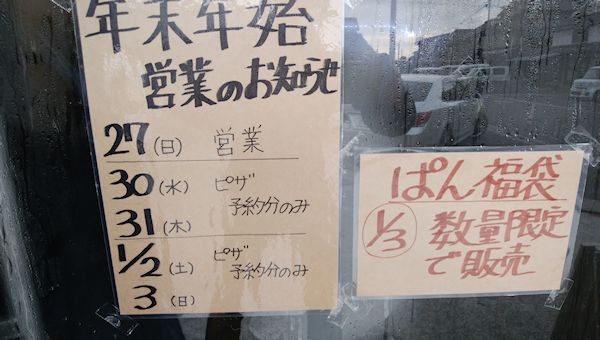 年末年始
営業のお知らせ
27(日) 営業
30(水) ピザ
予約分のみ
31(木)
1/2(土) ピザ
予約分のみ
3(日)
ぱん福袋
1/3 数量限定
で販売